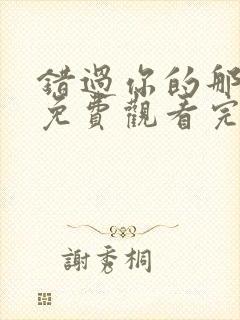 錯過你的那
免費觀看完
謝秀桐